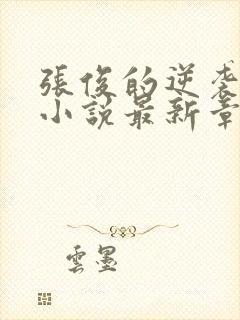 張俊的逆袭
小說最新章
雲墨